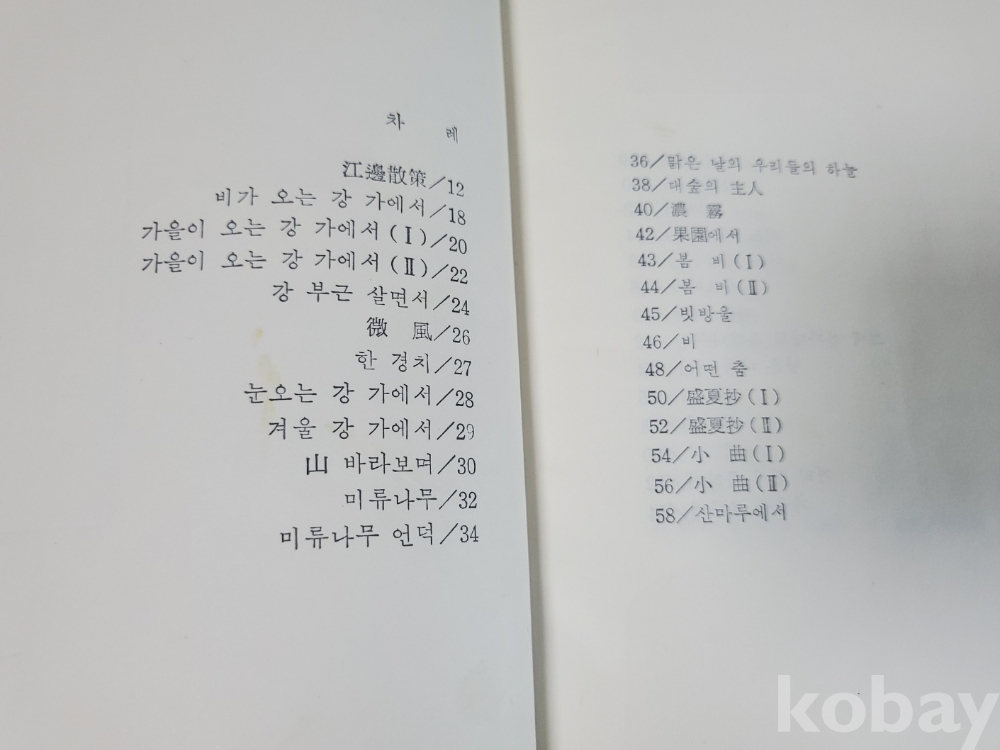 차 례
江邊散策/12
비가 오는 강 가에서/18
가을이 오는 강 가에서(Ⅰ)/20
가을이 오는 강 가에서(Ⅱ)/22
강 부근 살면서/24
微 風/26
한 경치/27
눈오는 강 가에서/28
겨울 강 가에서/29
山 바라보며/30
미류나무/32
미류나무 언덕/34
36/맑은 날의 우리들의 하늘
38/대숲의 主人
40/濃 霧
42/果園에서
43/봄 비(Ⅰ)
44/봄 비(Ⅱ)
45/빗방울
46/비
48/어떤 춤
50/盛夏抄(Ⅰ)
52/盛夏抄(Ⅱ)
54/小 曲(Ⅰ)
56/小 曲(Ⅱ)
58/산마루에서
kobay